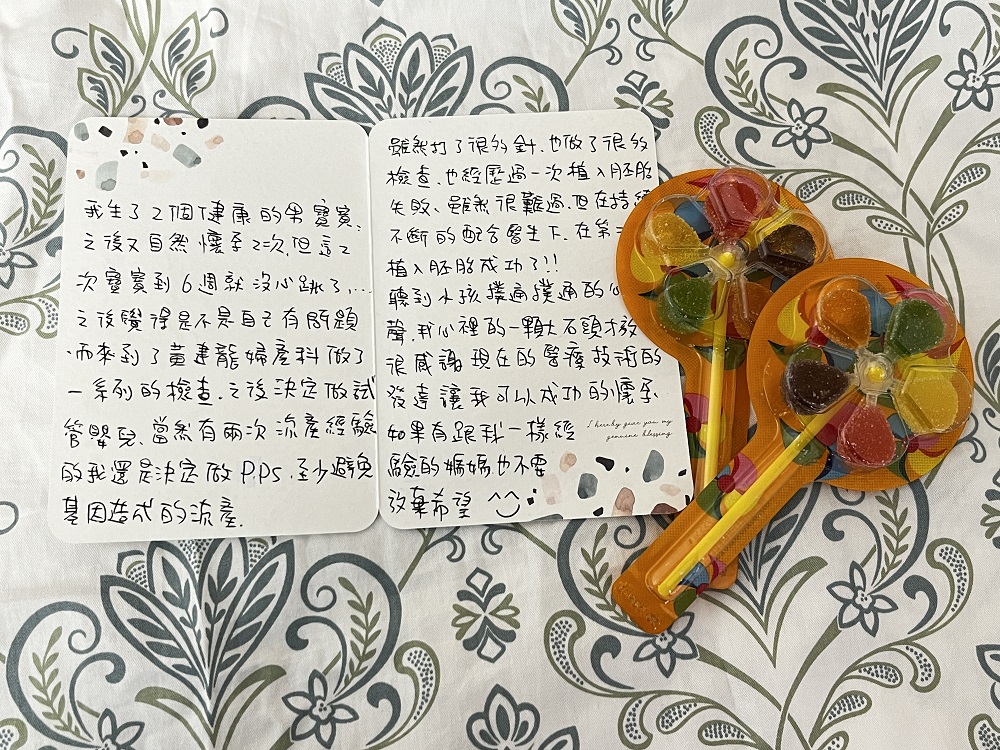 我生了2個健康的男寶寶、
之後又自然懷孕2次,但這2
次寶寶到6週就沒心跳了,...
之後覺得是不是自己有問題
,而來到了黃建龍婦產科做了
一系列的檢查.之後決定做試
管嬰兒、當然有兩次流產經驗
的我還是決定做P.PDs.至少避免
基因造成的流產.
雖然打了很多針.也做了很多
檢查.也經歷過一次植入胚胎
失敗、雖然很難過.但在持續
不斷的配合醫生下.在第二
植入胚胎成功了!!
聽到小孩撲通撲通的心
聲.我心裡的一顆大石頭才放
很感謝現在的醫療技術的
發達讓我可以成功的懷孕
如果有跟我一樣經
驗的媽媽也不要
放棄希望 ^‿^
I hereby give you my
genuine blessing